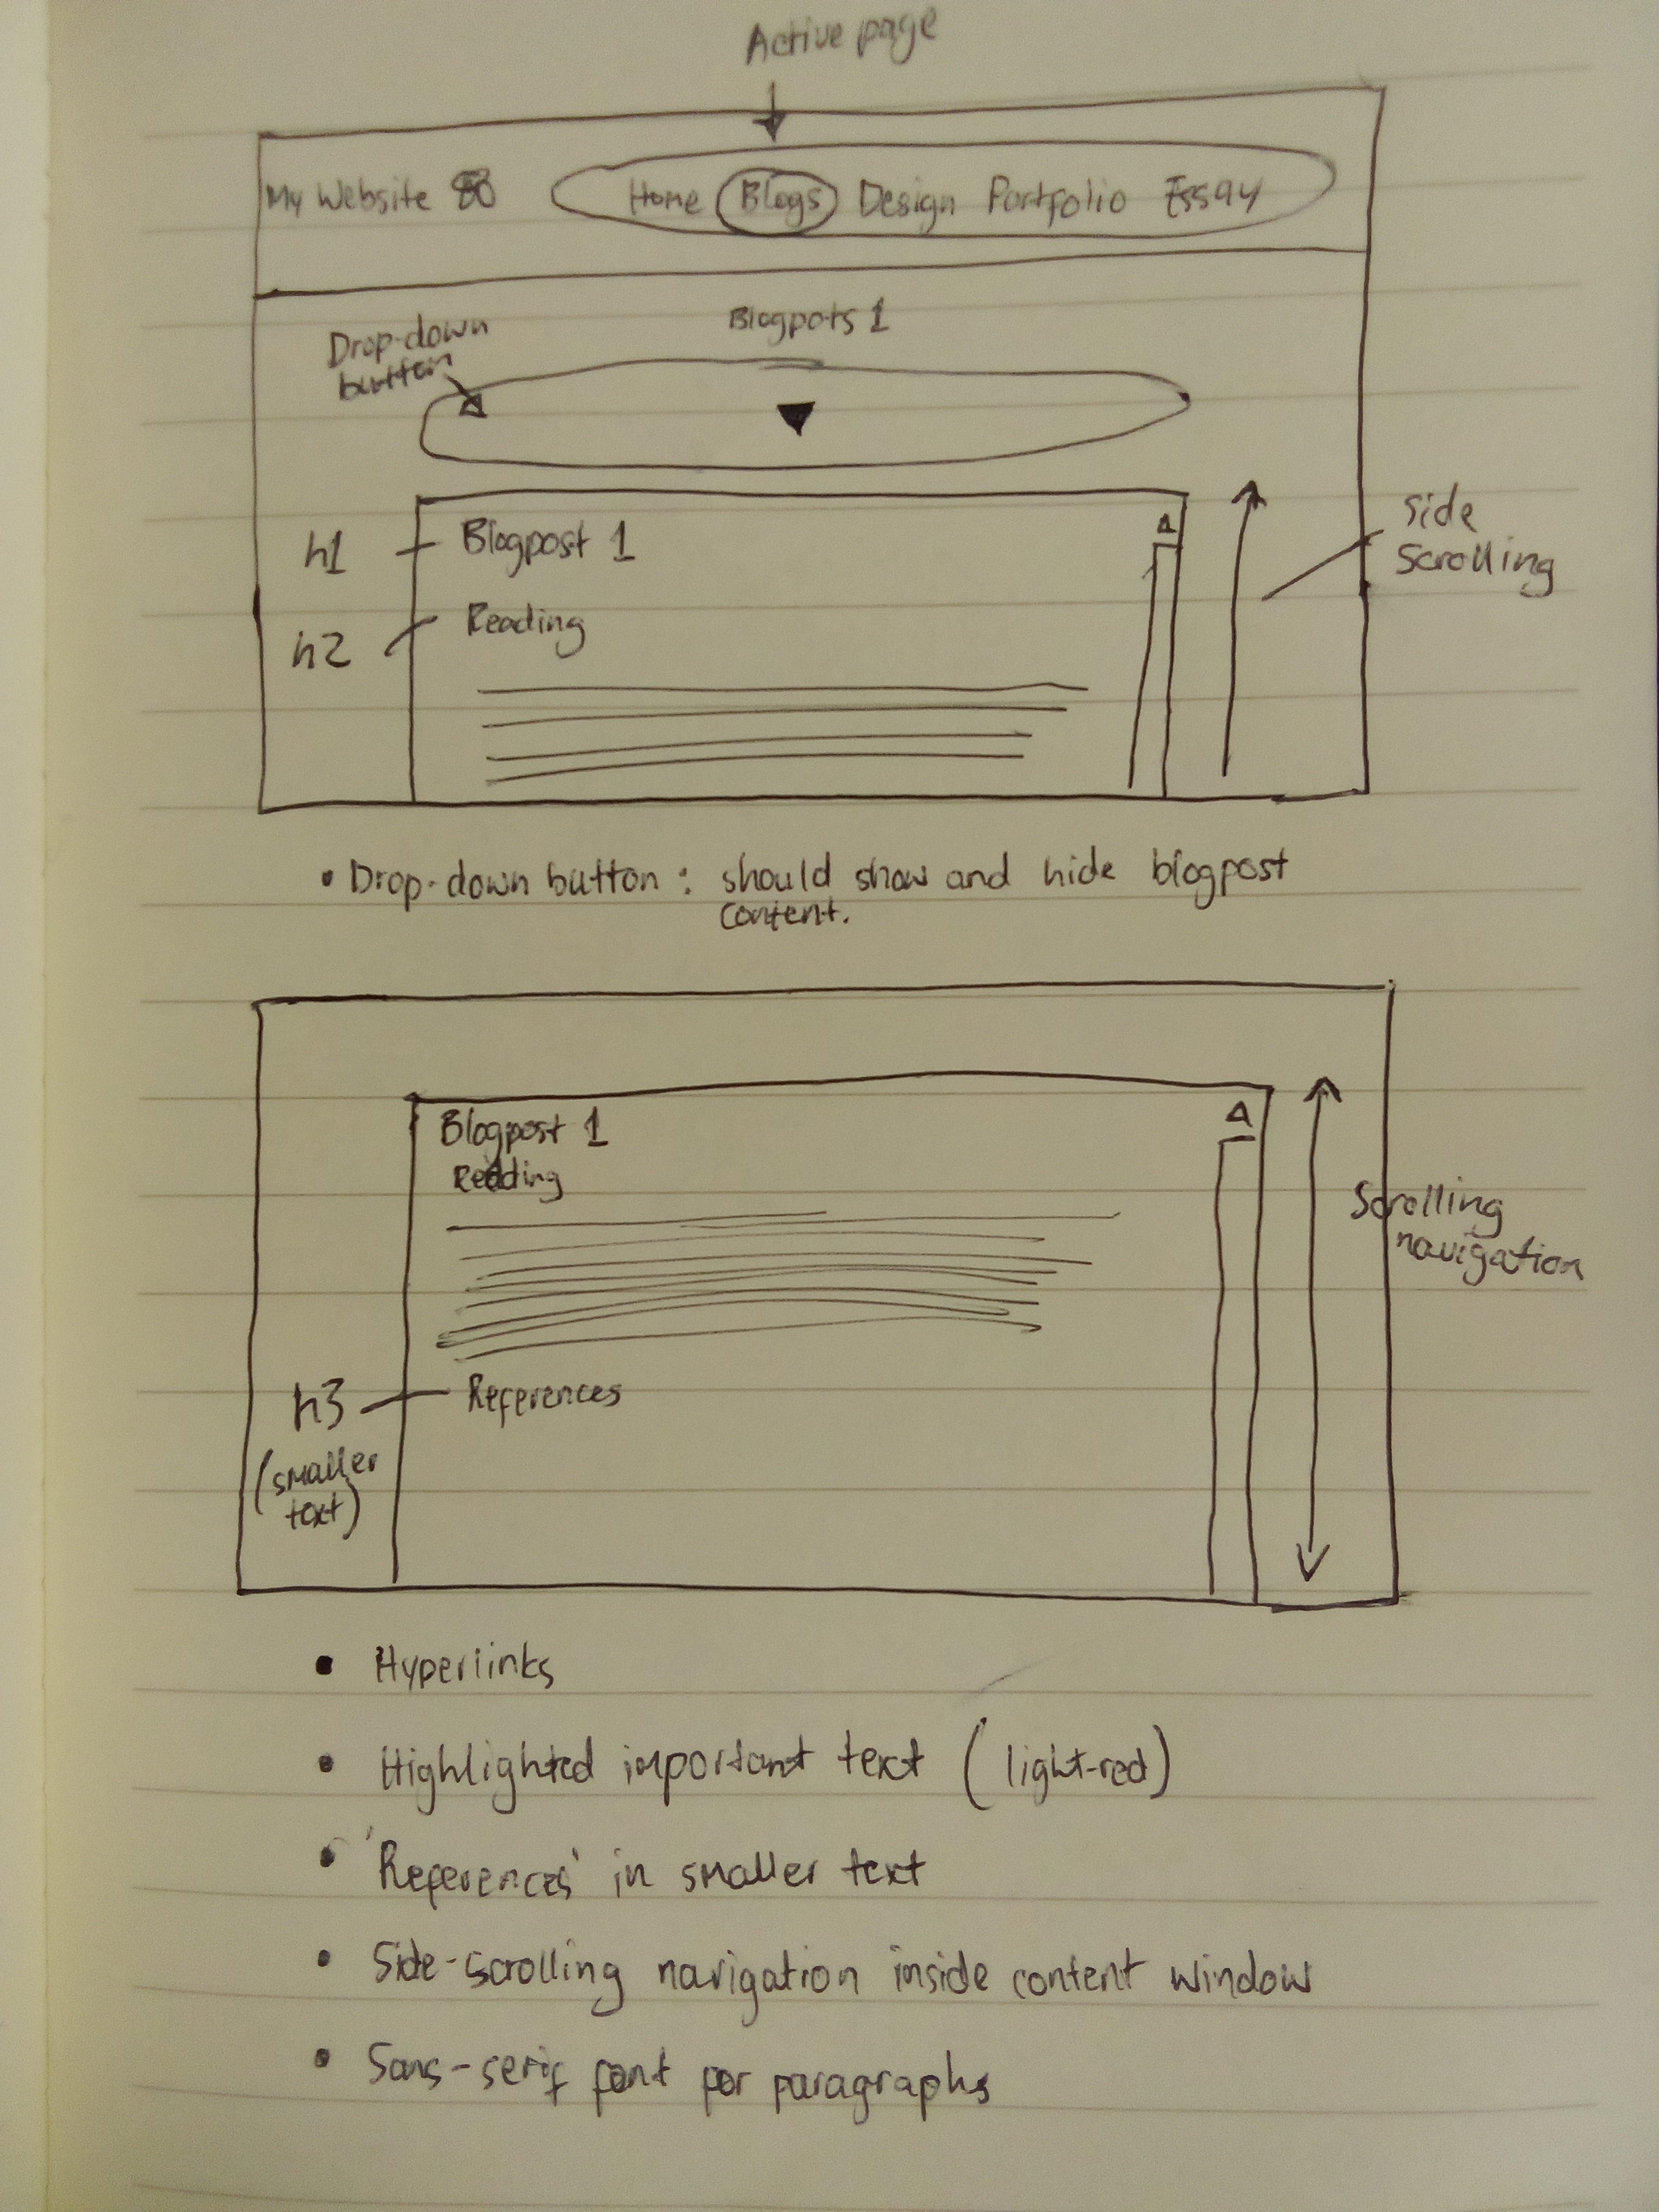 Active page
My Website
Home Blogs Design Portfolio Essay
Blogpots 1
Drop-down
button
h1
Blogpost 1
Side
Scrolling
h2
Reading
• Drop-down button: should show and hide blogpost
content.
Blogpost 1
Reading
Scrolling
navigation
h3
References
(smaller
text)
• Hyperlinks
• Highlighted important text (light-red)
• 'References' in smaller text
• Side-scrolling navigation inside content window
• Sans-serif font for paragraphs